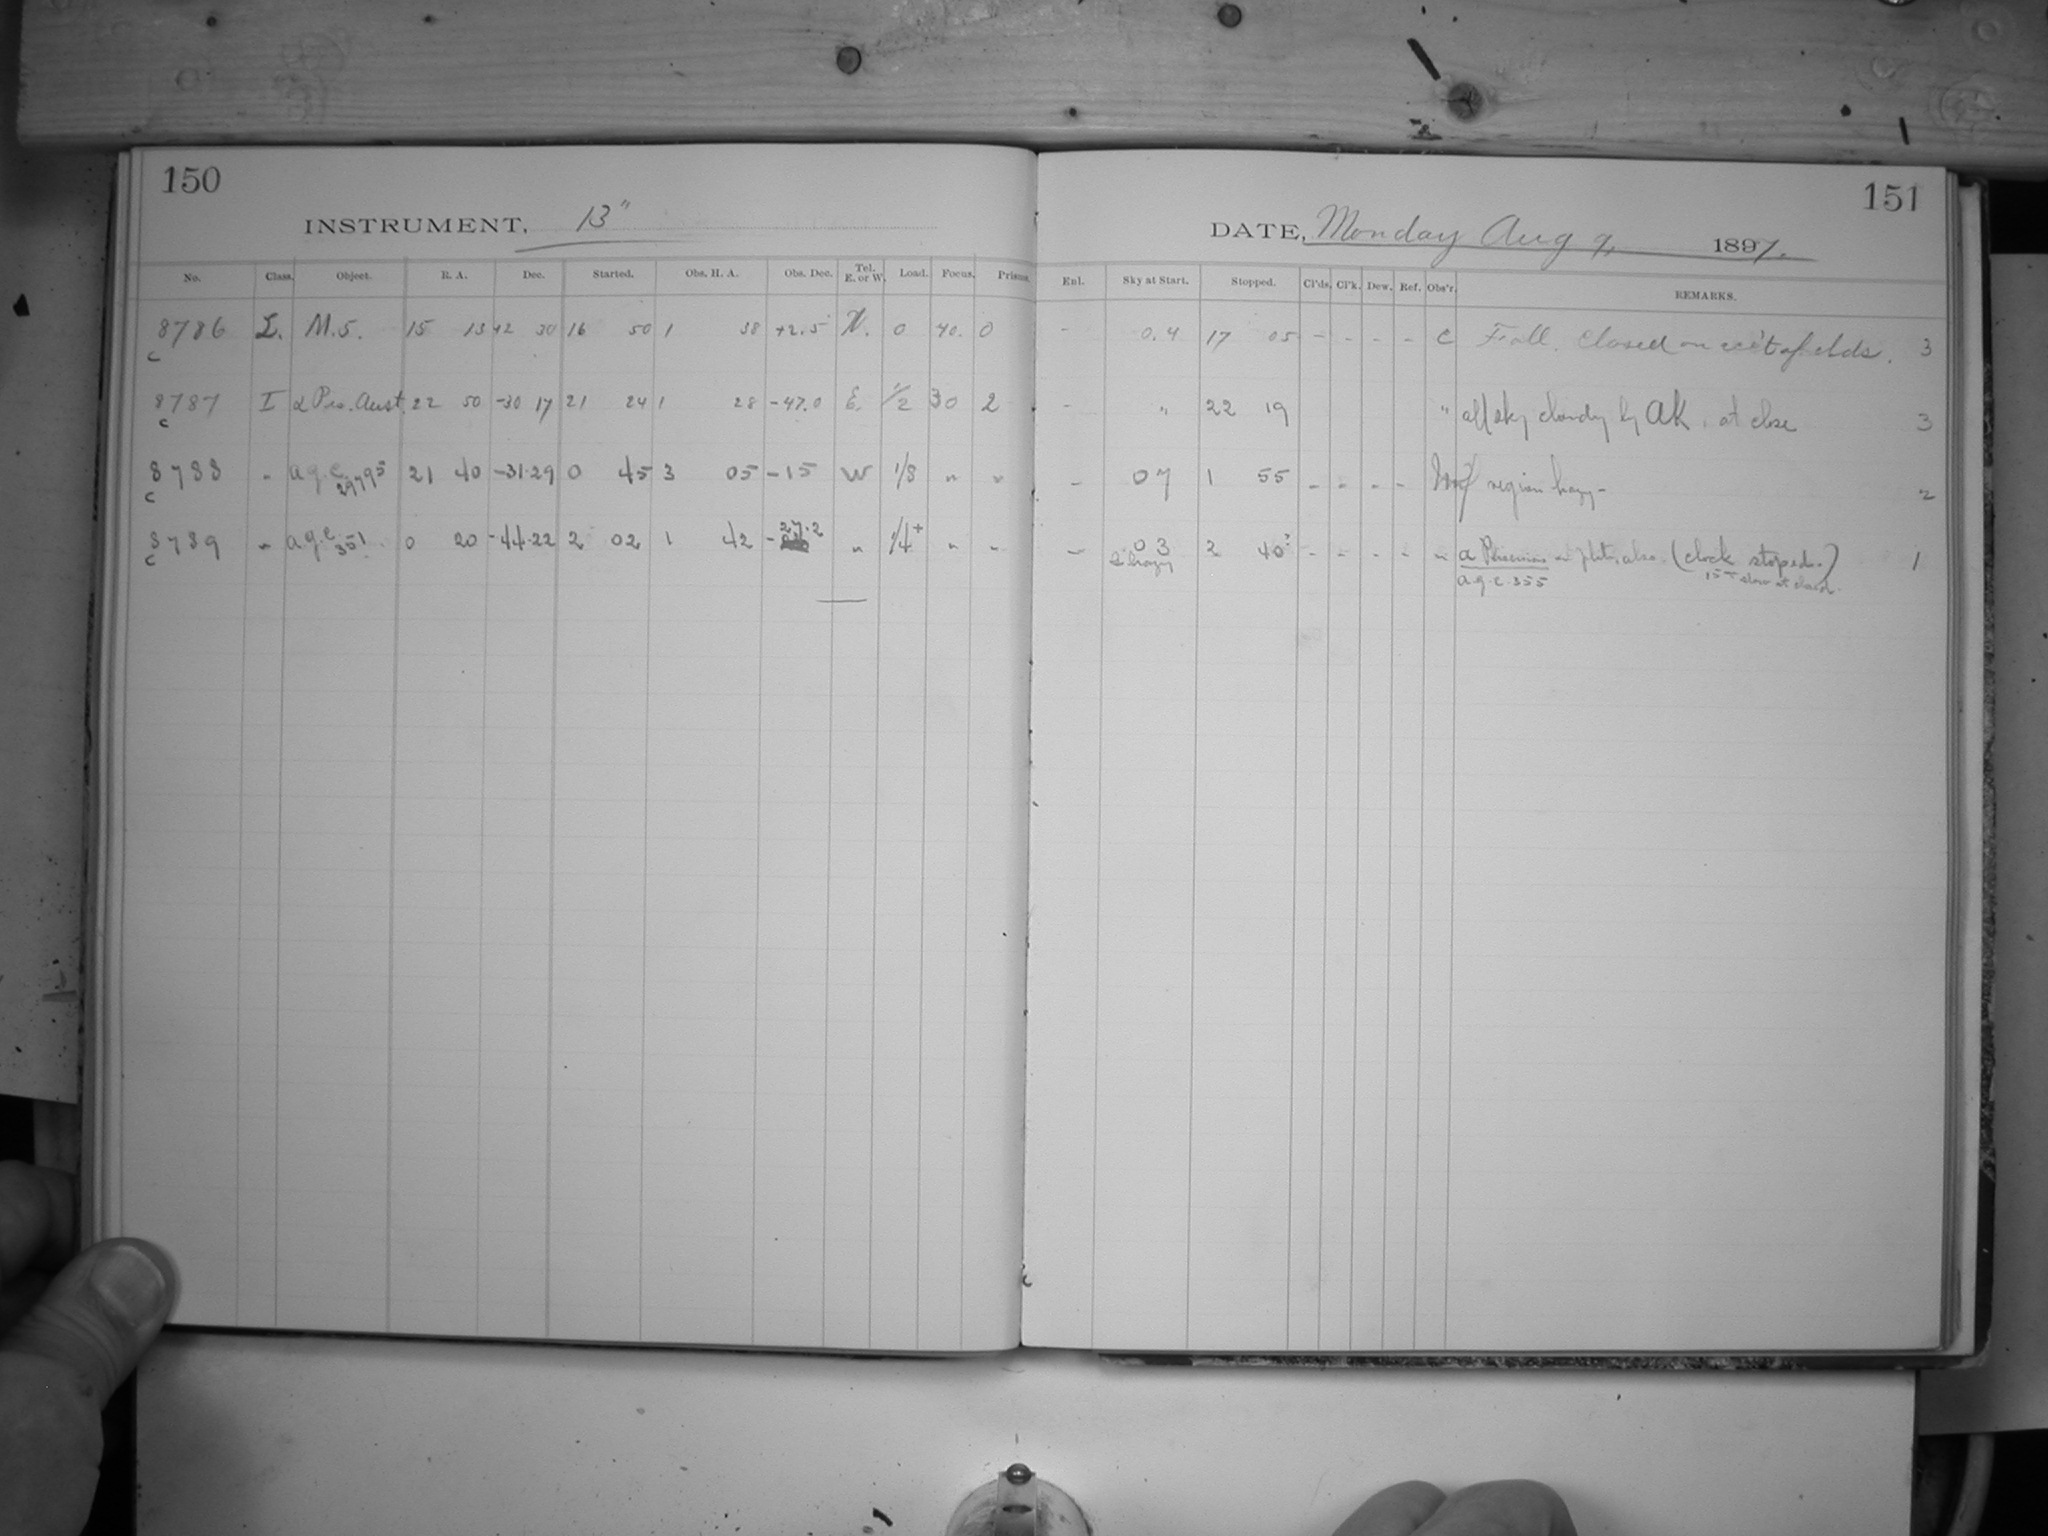 150
INSTRUMENT, 13"
No. Class. Object. R. A. Dec. Started. Obs. H. A. Obs. Dec. Tel. E. or W. Load. Focus. Prisms.
8786 L. M.5. 15 13 +2 30 16 50 1 38 +2.5 0 40. 0
c
8787 I α Pis. Aust. 22 50 -30 17 21 24 1 28 -47.0 E. 1/2 30 2
c
8788 " a.g.c. 29795 21 40 -31.29 0 45 3 05 -15 W 1/8 " "
c
8789 " a.g.c. 351 0 20 -44.22 2 02 1 42 -27.2 " 1/4+ " "
c
151
DATE, Monday Aug 9, 1897.
Enl. Sky at Start. Stopped. Cl'ds. Cl'k. Dew. Ref. Obs'r. REMARKS.
- 0.4 17 05 - - - - C Foll. Closed on acc't of clds. 3
- " 22 19 " all sky cloudy by AK. at close 3
- 07 1 55 - - - - region hazy- 2
- 03 2 40? - - - - " also (clock stoped.) 1
hazy a.g.c. 355 slow at